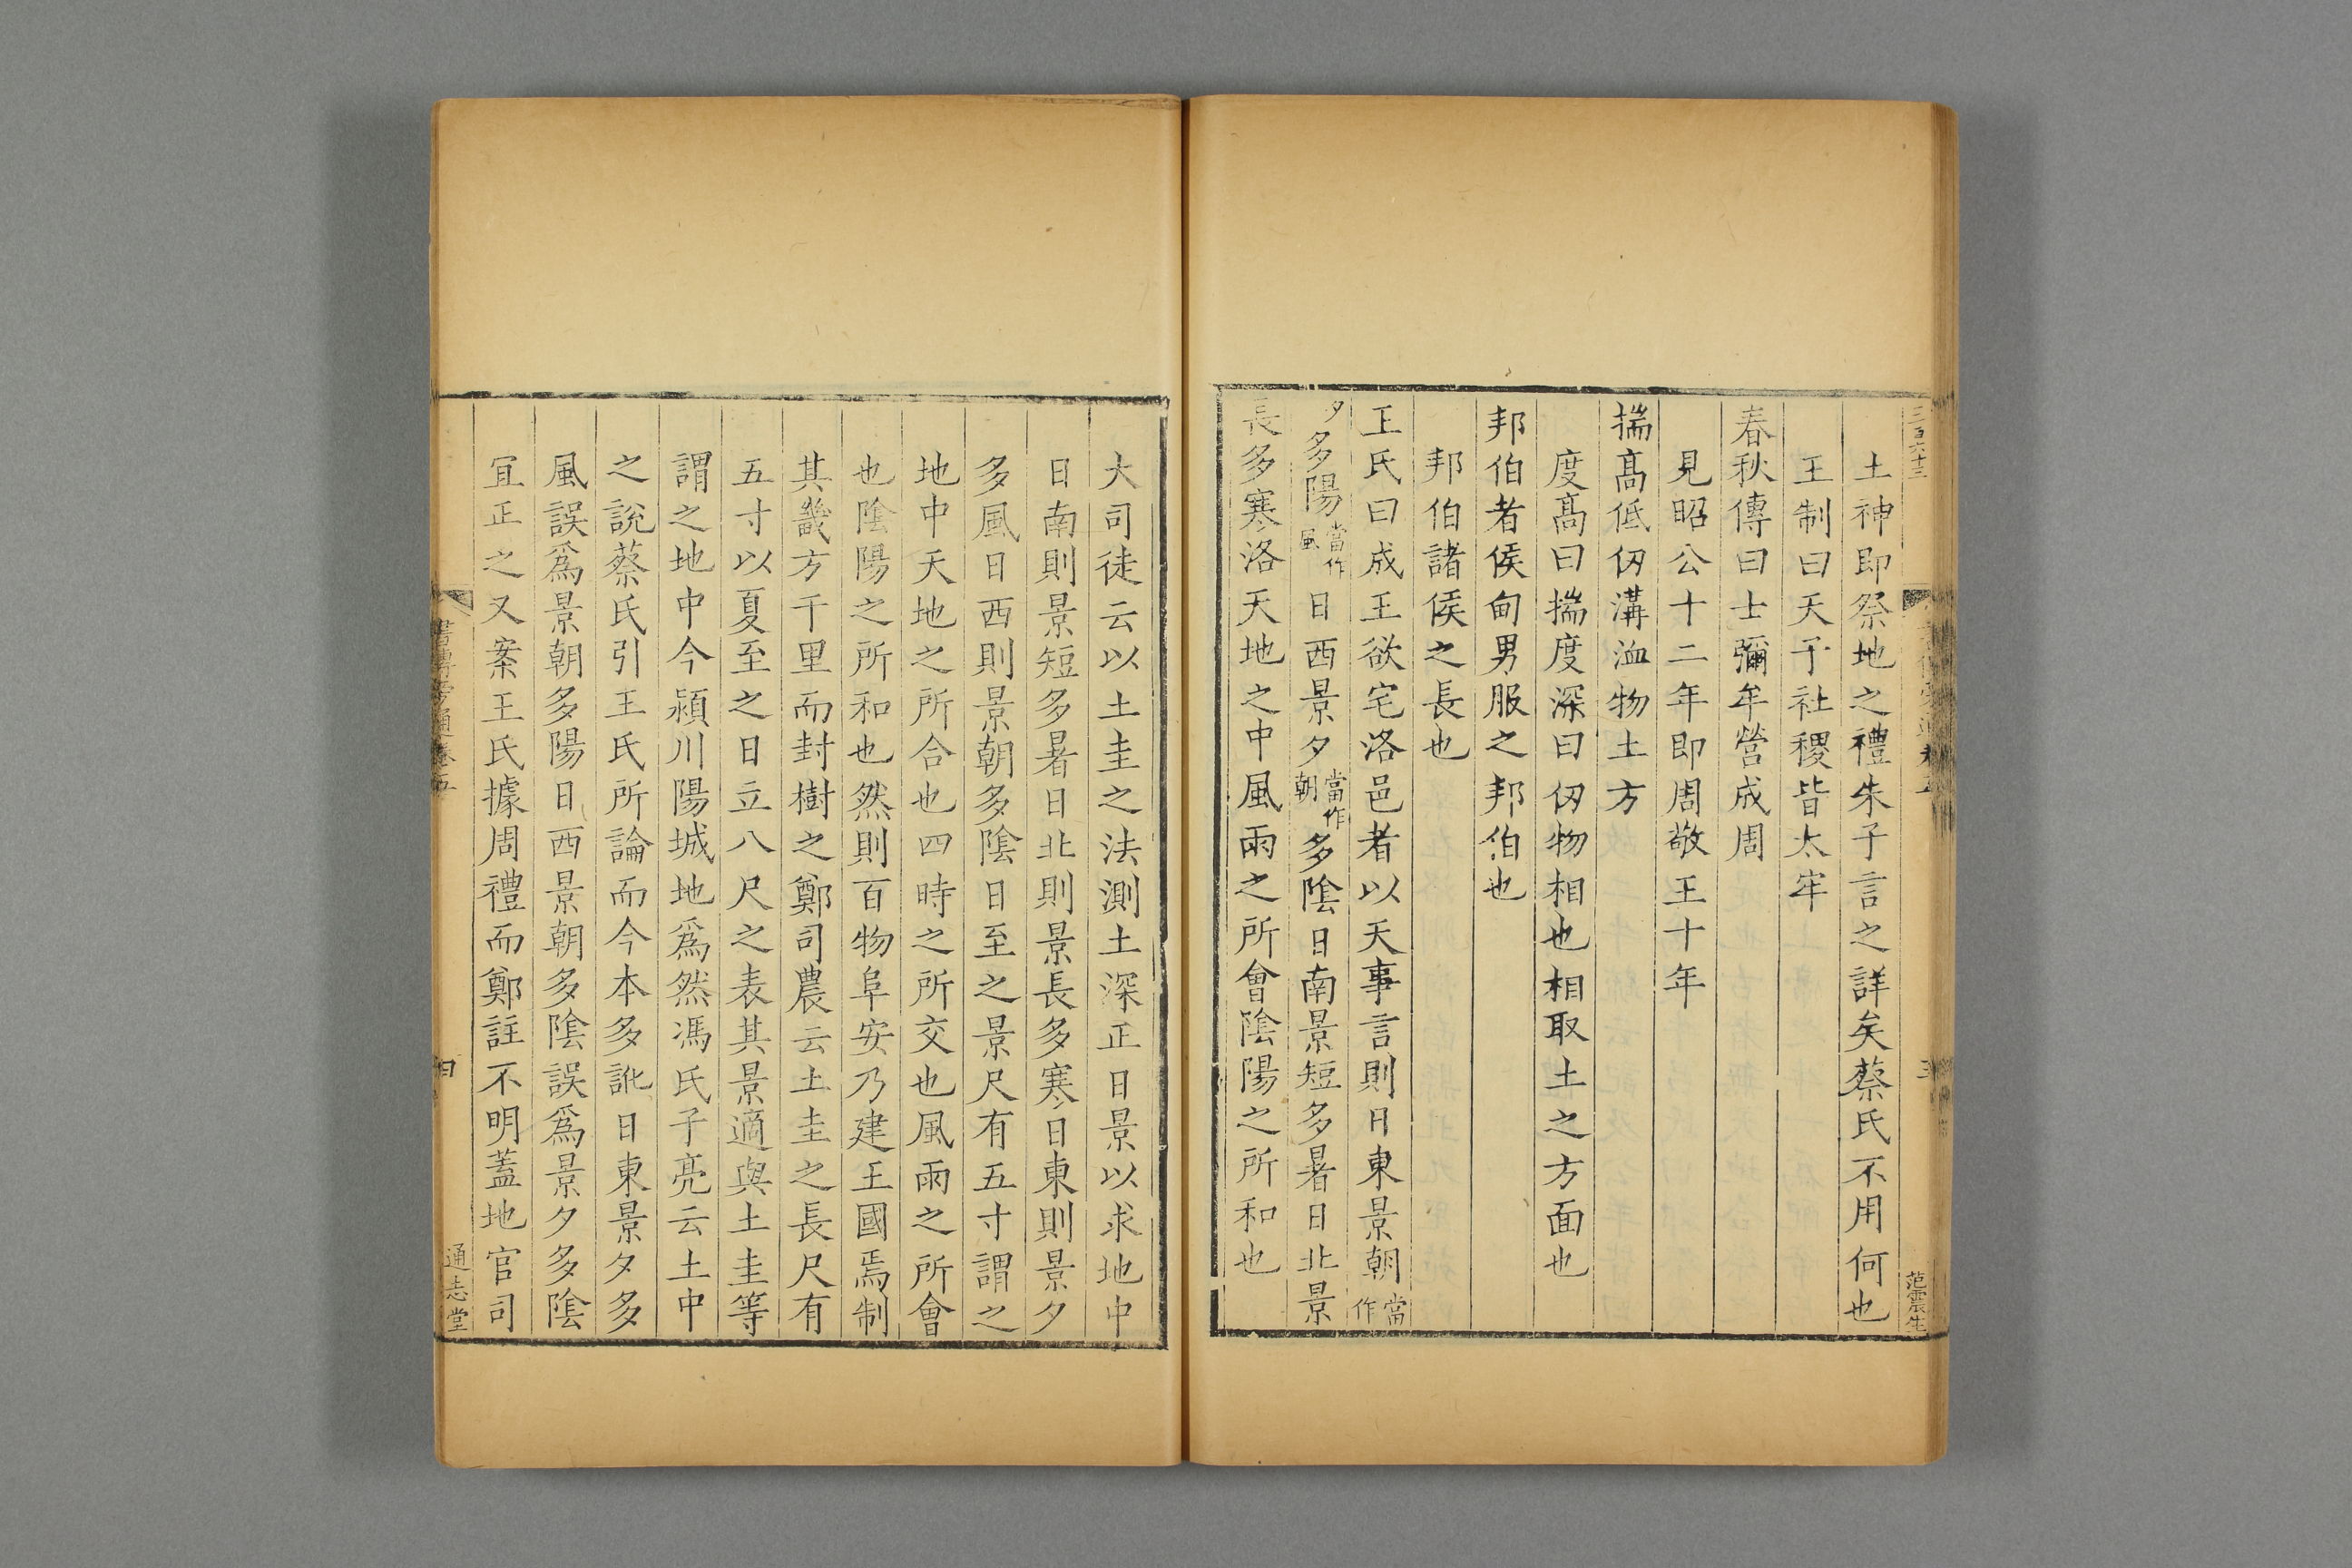 三百六十三
范震生
土神即祭地之禮朱子言之詳矣蔡氏不用何也
王制曰天子社稷皆太牢
春秋傳曰士彌牟營成周
見昭公十二年即周敬王十年
揣髙低仞溝洫物土方
度髙曰揣度深曰仞物相也相取土之方面也
邦伯者侯甸男服之邦伯也
邦伯諸侯之長也
王氏曰成王欲宅洛邑者以天事言則日東景朝當作
夕多陽當作風日西景夕當作朝多陰日南景短多暑日北景
長多寒洛天地之中風雨之所會陰陽之所和也
大司徒云以土圭之法測土深正日景以求地中
日南則景短多暑日北則景長多寒日東則景夕
多風日西則景朝多陰日至之景尺有五寸謂之
地中天地之所合也四時之所交也風雨之所會
也陰陽之所和也然則百物阜安乃建王國焉制
其畿方千里而封樹之鄭司農云土圭之長尺有
五寸以夏至之日立八尺之表其景適與土圭等
謂之地中今潁川陽城地爲然馮氏子亮云土中
之說蔡氏引王氏所論而今本多訛日東景夕多
風誤爲景朝多陽日西景朝多陰誤爲景夕多陰
冝正之又案王氏據周禮而鄭註不明蓋地官司
書傳旁通卷五
通志堂